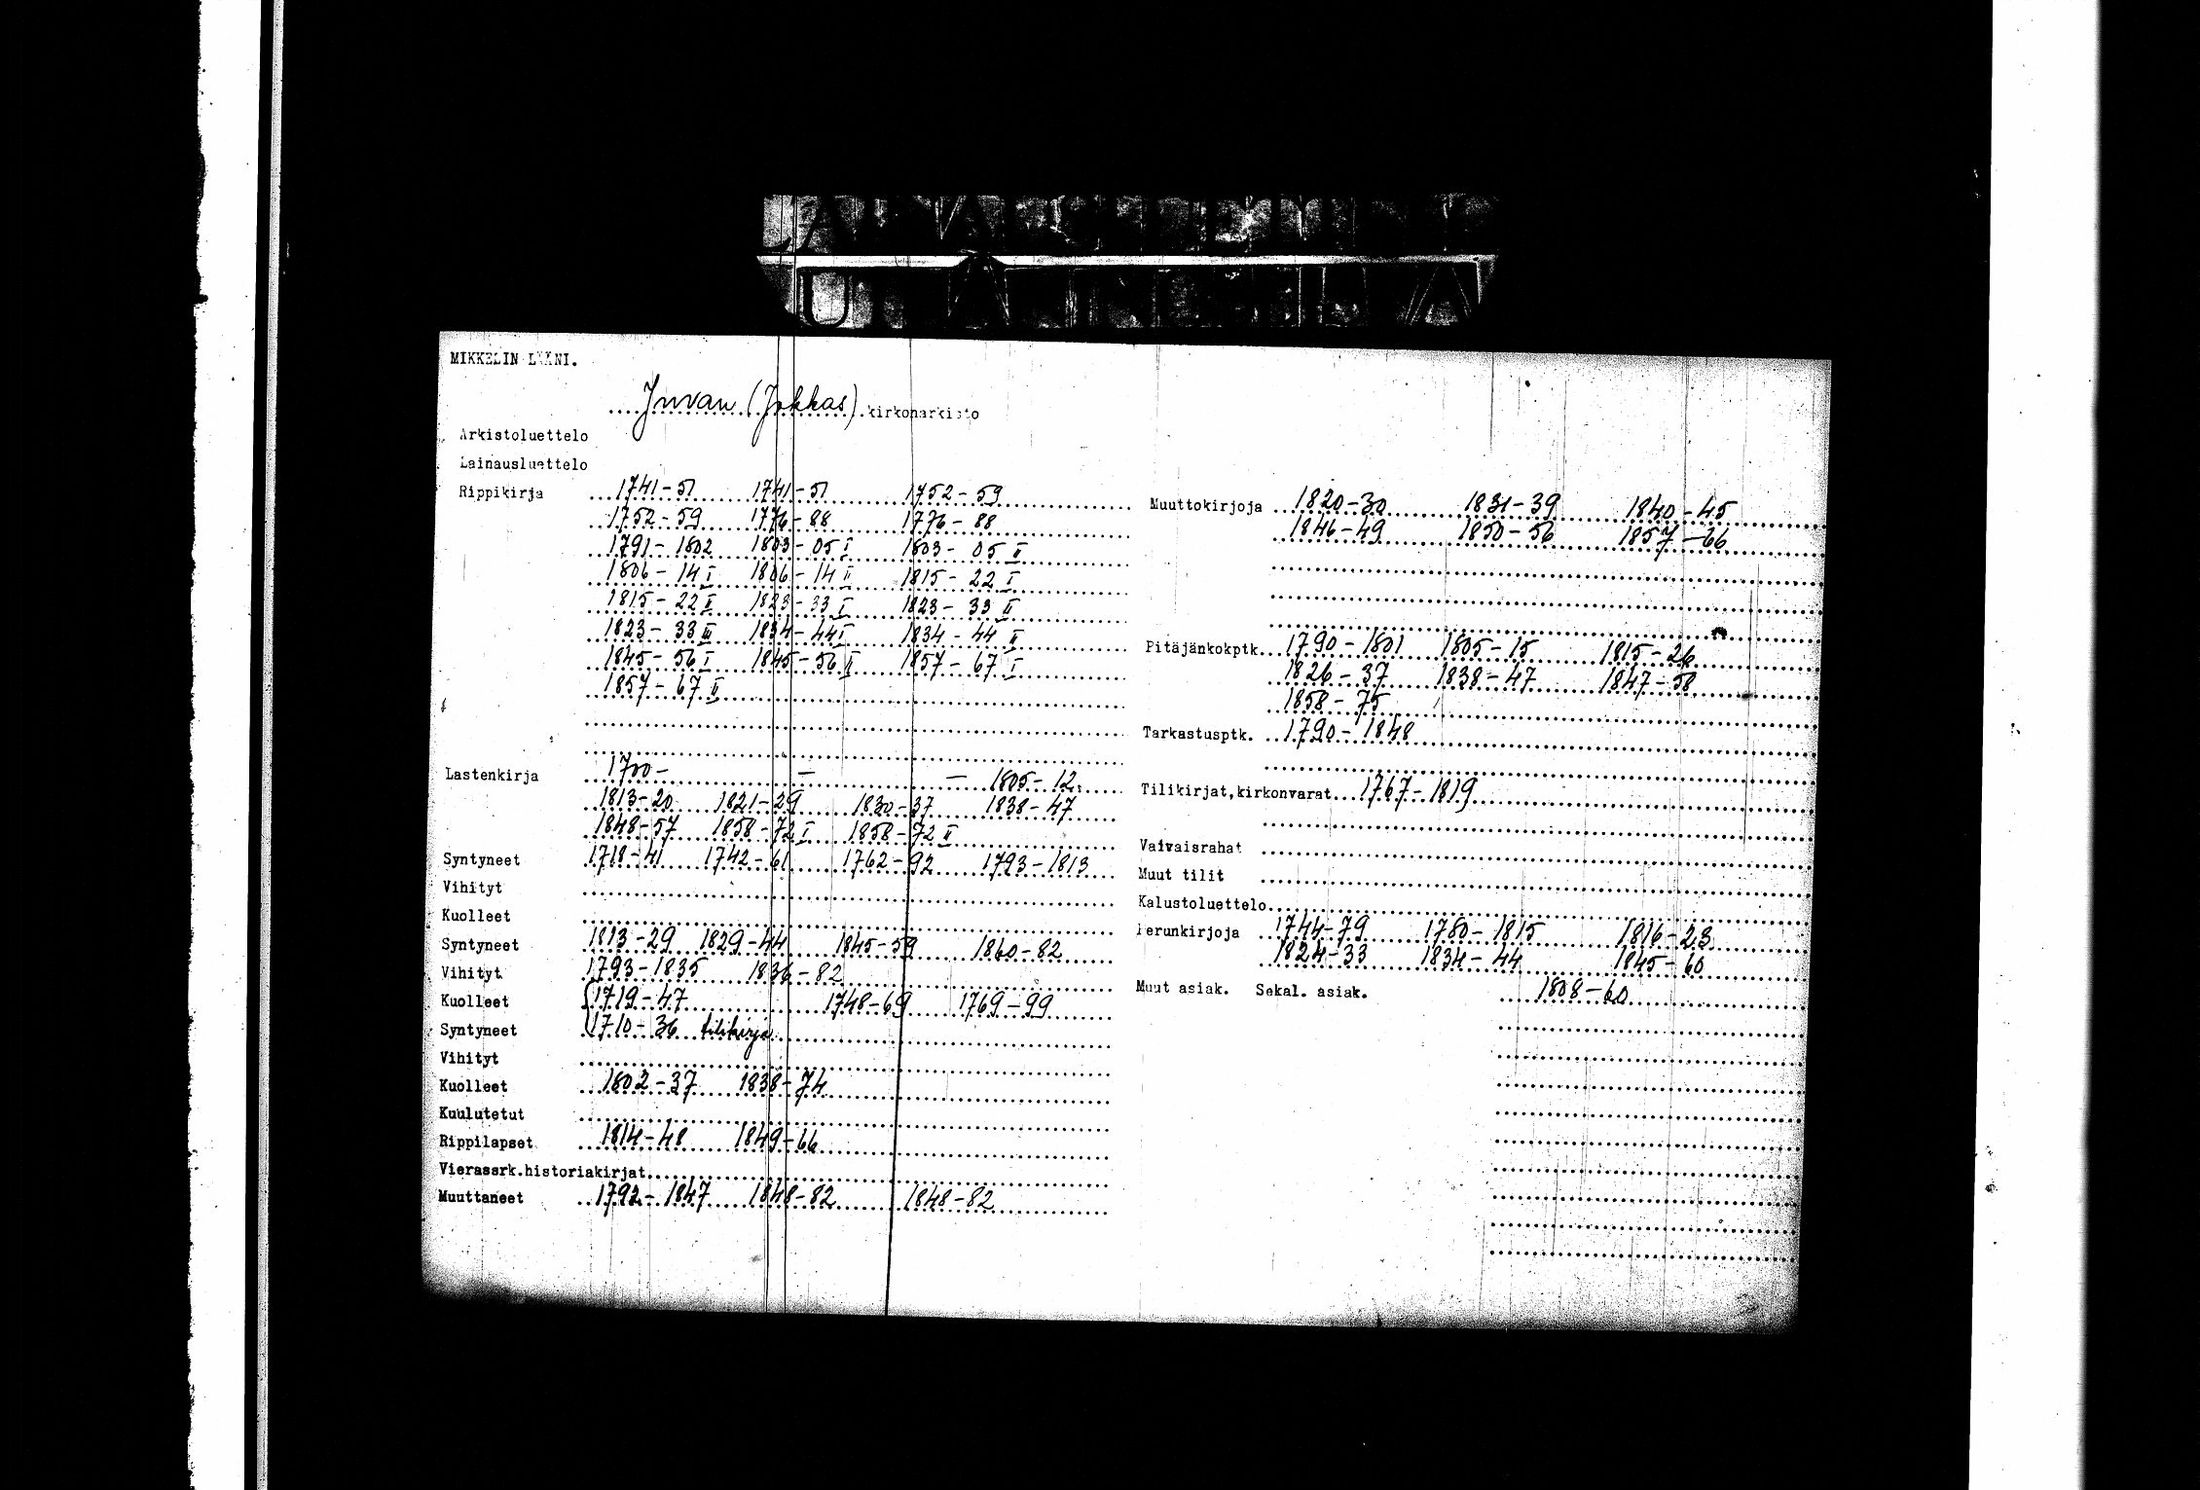 MIKKELIN LÄÄNI.
Juvan (Jokkas) kirkonarkisto
Arkistoluettelo
Lainausluettelo
Rippikirja 1741-51 1741-51 1752-59
1752-59 1776-88 1776-88
1791-1802 1803-05 I 1803-05 II
1806-14 I 1806-14 II 1815-22 I
1815-22 II 1823-33 I 1823-33 II
1823-33 III 1834-44 I 1834-44 II
1845-56 I 1845-56 II 1857-67 I
1857-67 II
Lastenkirja 1700- — — 1805-12
1813-20 1821-29 1830-37 1838-47
1848-57 1858-72 I 1858-72 II
Syntyneet 1718-41 1742-61 1762-92 1793-1813
Vihityt
Kuolleet
Syntyneet 1813-29 1829-44 1845-59 1860-82
Vihityt 1793-1835 1836-82
Kuolleet 1719-47 1748-69 1769-99
Syntyneet 1710-36 tilikirja
Vihityt
Kuolleet 1802-37 1838-74
Kuulutetut
Rippilapset 1814-48 1849-66
Vierassrk.historiakirjat
Muuttaneet 1792-1847 1848-82 1848-82
Muuttokirjoja 1820-30 1831-39 1840-45
1846-49 1850-56 1857-66
Pitäjänkokptk. 1790-1801 1805-15 1815-26
1826-37 1838-47 1847-58
1858-75
Tarkastusptk. 1790-1848
Tilikirjat,kirkonvarat 1767-1819
Vaivaisrahat
Muut tilit
Kalustoluettelo
Perunkirjoja 1744-79 1780-1815 1816-23
1824-33 1834-44 1845-60
Muut asiak. Sekal. asiak. 1808-60